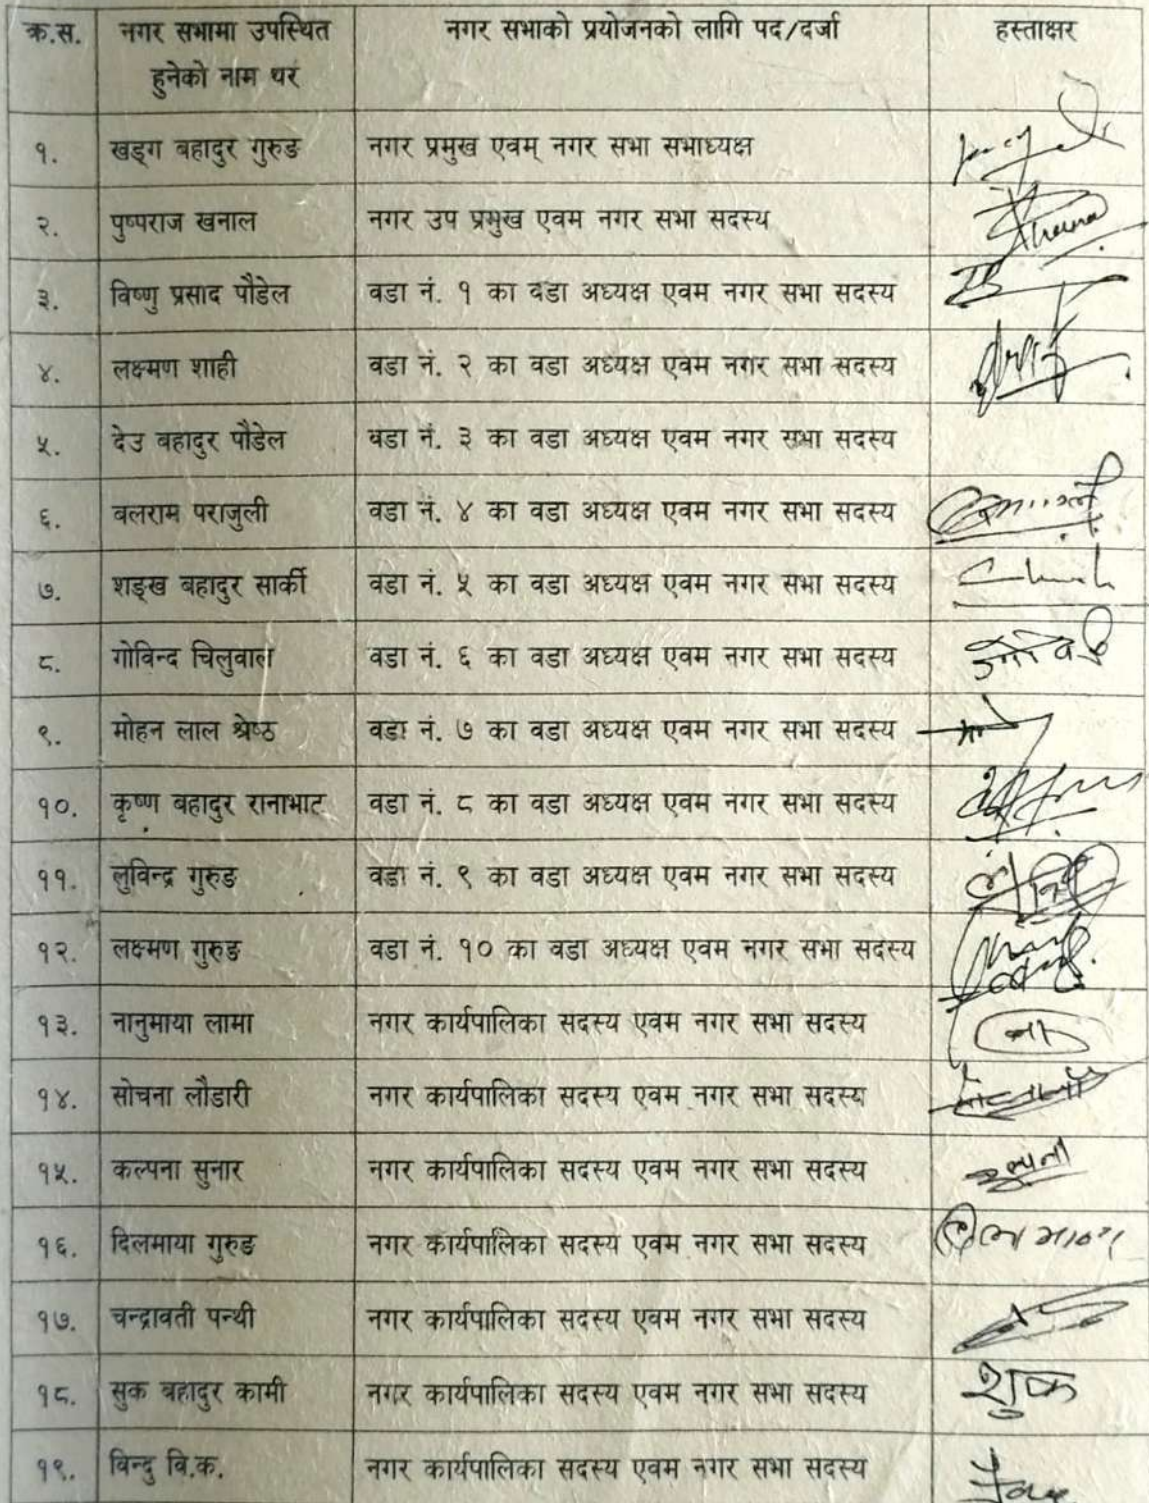 क्र.स. नगर सभामा उपस्थित हुनेको नाम थर नगर सभाको प्रयोजनको लागि पद/दर्जा हस्ताक्षर
१. खड्ग बहादुर गुरुङ नगर प्रमुख एवम् नगर सभा सभाध्यक्ष
२. पुष्पराज खनाल नगर उप प्रमुख एवम नगर सभा सदस्य
३. विष्णु प्रसाद पौडेल वडा नं. १ का वडा अध्यक्ष एवम नगर सभा सदस्य
४. लक्ष्मण शाही वडा नं. २ का वडा अध्यक्ष एवम नगर सभा सदस्य
५. देउ बहादुर पौडेल वडा नं. ३ का वडा अध्यक्ष एवम नगर सभा सदस्य
६. वलराम पराजुली वडा नं. ४ का वडा अध्यक्ष एवम नगर सभा सदस्य
७. शङ्ख बहादुर सार्की वडा नं. ५ का वडा अध्यक्ष एवम नगर सभा सदस्य
८. गोविन्द चिलुवाल वडा नं. ६ का वडा अध्यक्ष एवम नगर सभा सदस्य
९. मोहन लाल श्रेष्ठ वडा नं. ७ का वडा अध्यक्ष एवम नगर सभा सदस्य
१०. कृष्ण बहादुर रानाभाट वडा नं. ८ का वडा अध्यक्ष एवम नगर सभा सदस्य
११. लुविन्द्र गुरुङ वडा नं. ९ का वडा अध्यक्ष एवम नगर सभा सदस्य
१२. लक्ष्मण गुरुङ वडा नं. १० का वडा अध्यक्ष एवम नगर सभा सदस्य
१३. नानुमाया लामा नगर कार्यपालिका सदस्य एवम नगर सभा सदस्य ना
१४. सोचना लौडारी नगर कार्यपालिका सदस्य एवम नगर सभा सदस्य
१५. कल्पना सुनार नगर कार्यपालिका सदस्य एवम नगर सभा सदस्य कल्पना
१६. दिलमाया गुरुङ नगर कार्यपालिका सदस्य एवम नगर सभा सदस्य
१७. चन्द्रावती पन्थी नगर कार्यपालिका सदस्य एवम नगर सभा सदस्य
१८. सुक बहादुर कामी नगर कार्यपालिका सदस्य एवम नगर सभा सदस्य शुक
१९. विन्दु वि.क. नगर कार्यपालिका सदस्य एवम नगर सभा सदस्य